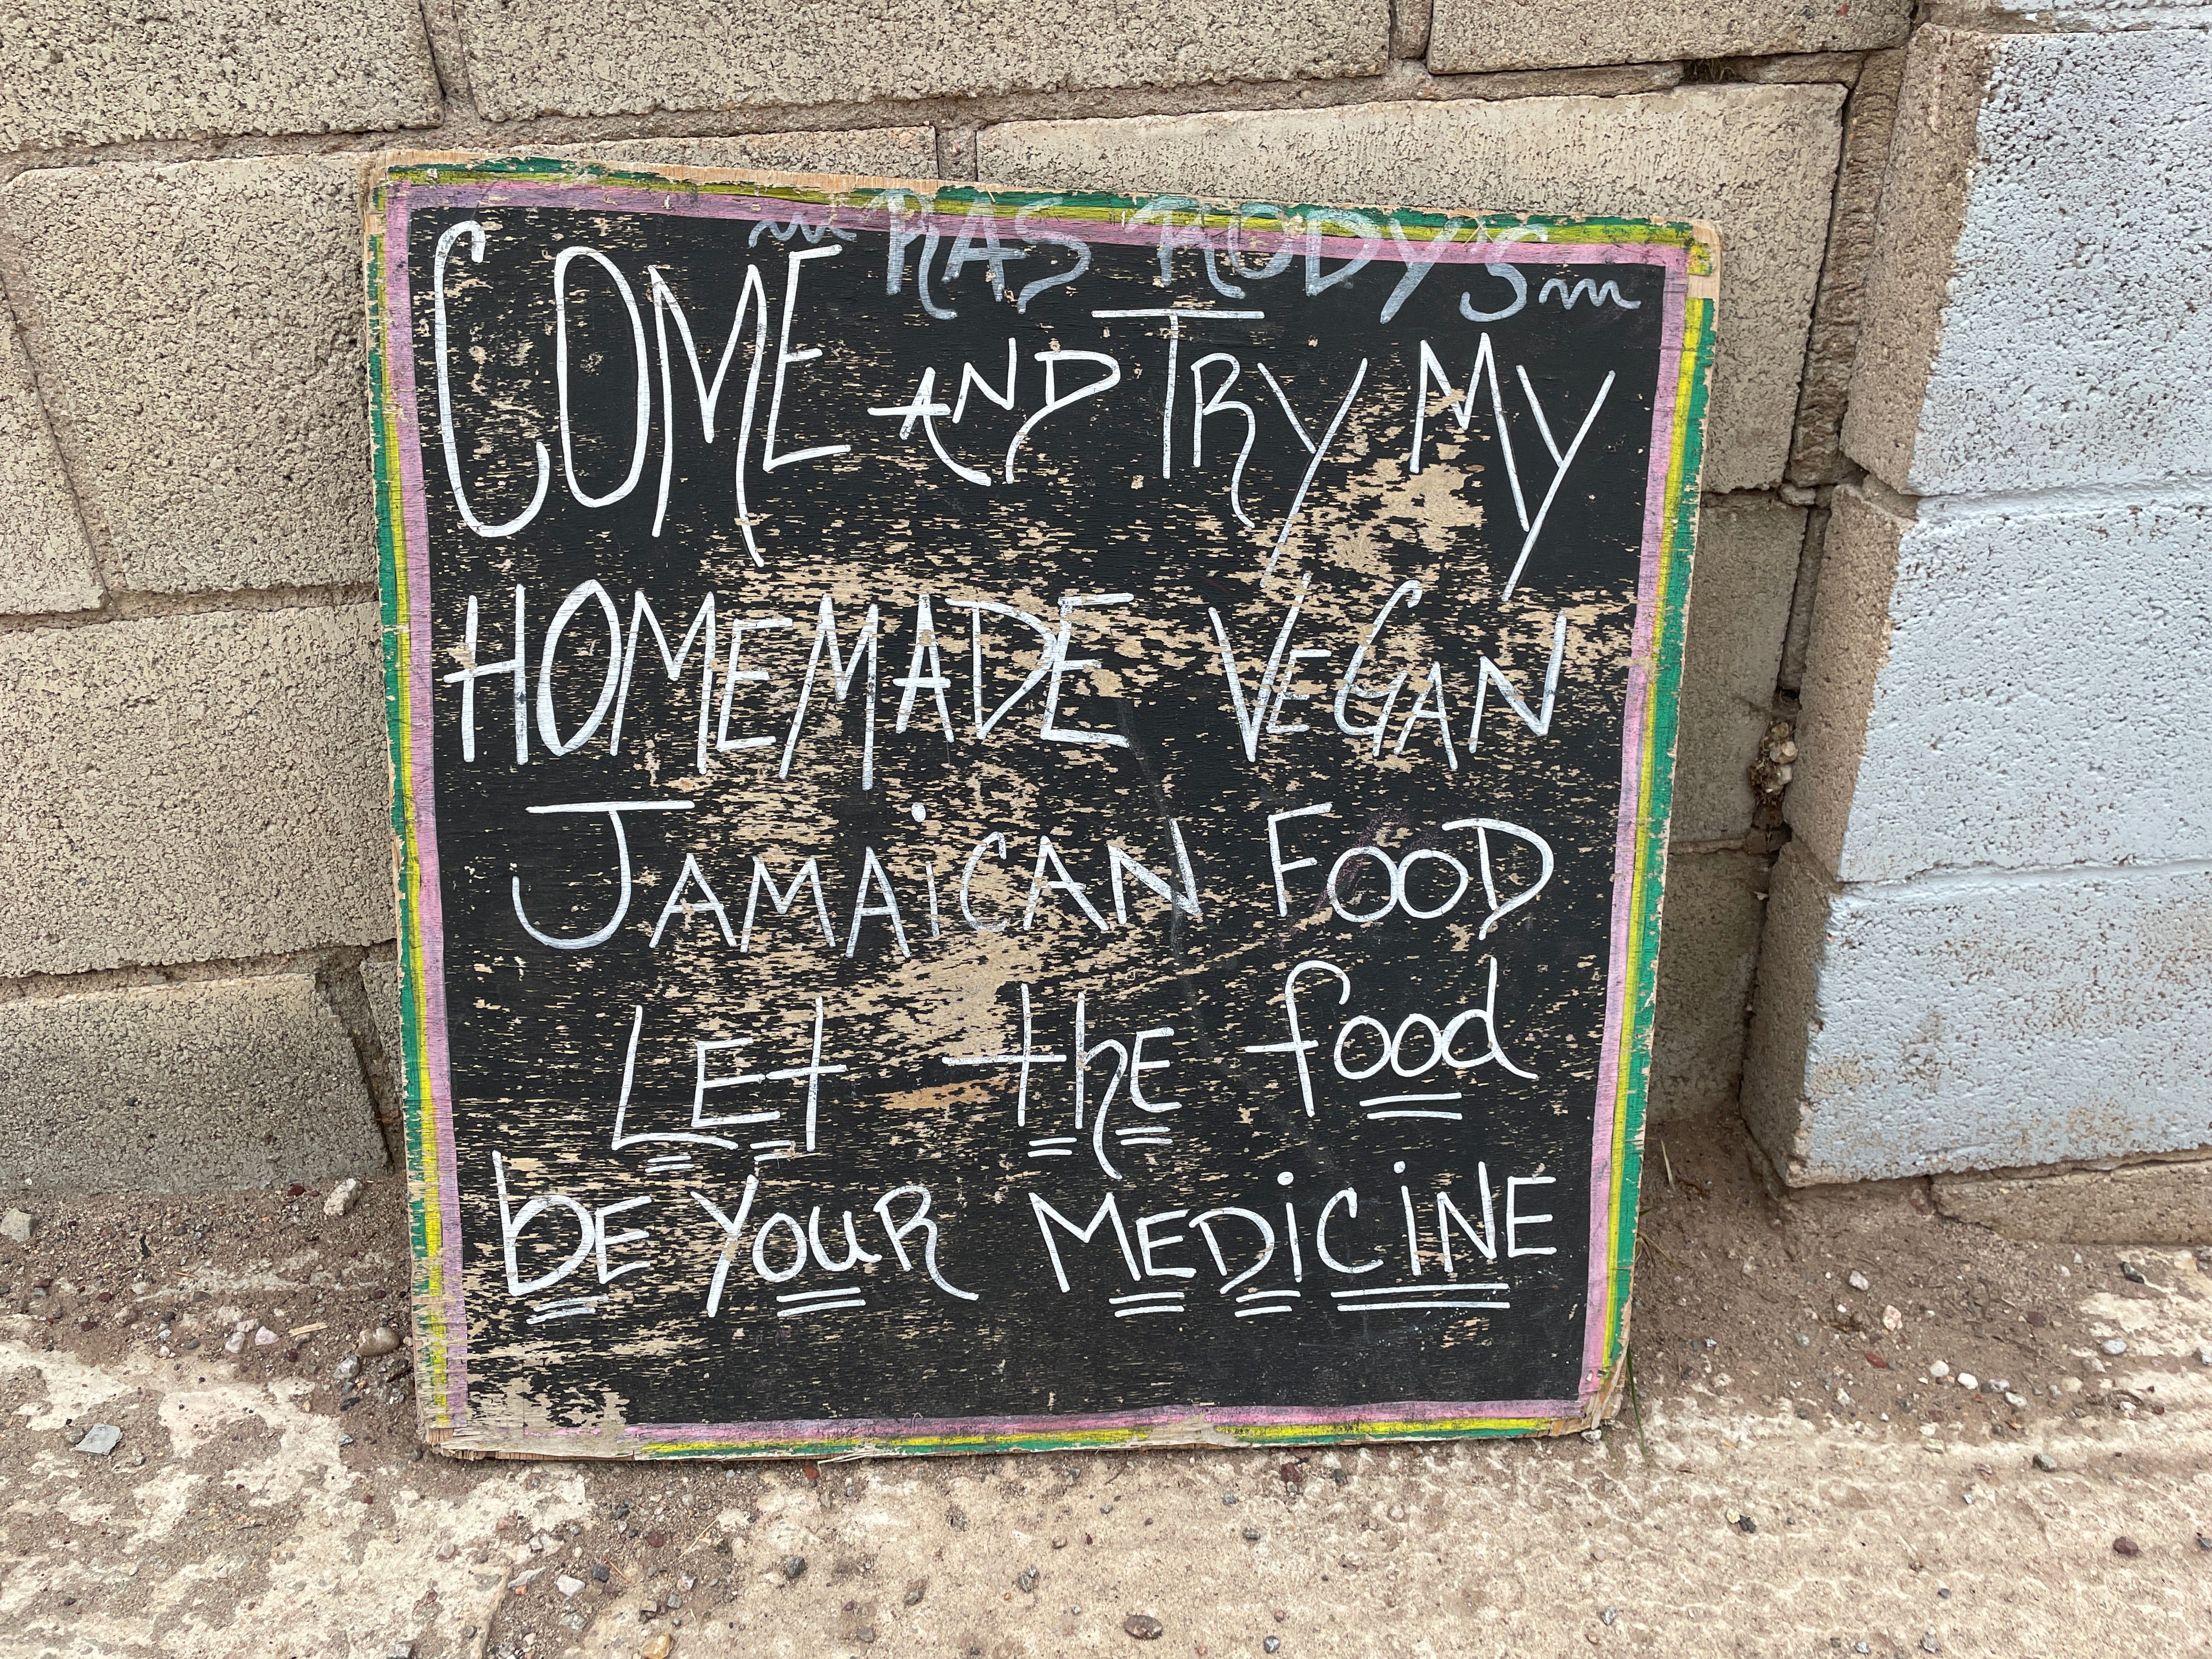 ~ RAS RODY'S ~
COME AND TRY MY
HOMEMADE VEGAN
JAMAiCAN FOOD
LEt thE food
bE YouR MEDiCiNE